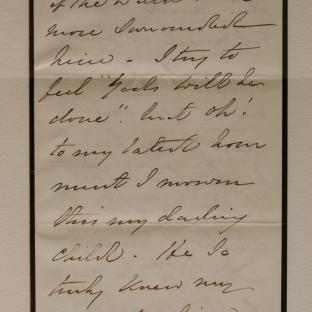 of the
more surrounded
him - I try to
feel "God's will be
done". but oh!
to my latest hour
must I mourn
this my darling
child - He so
truly knew my